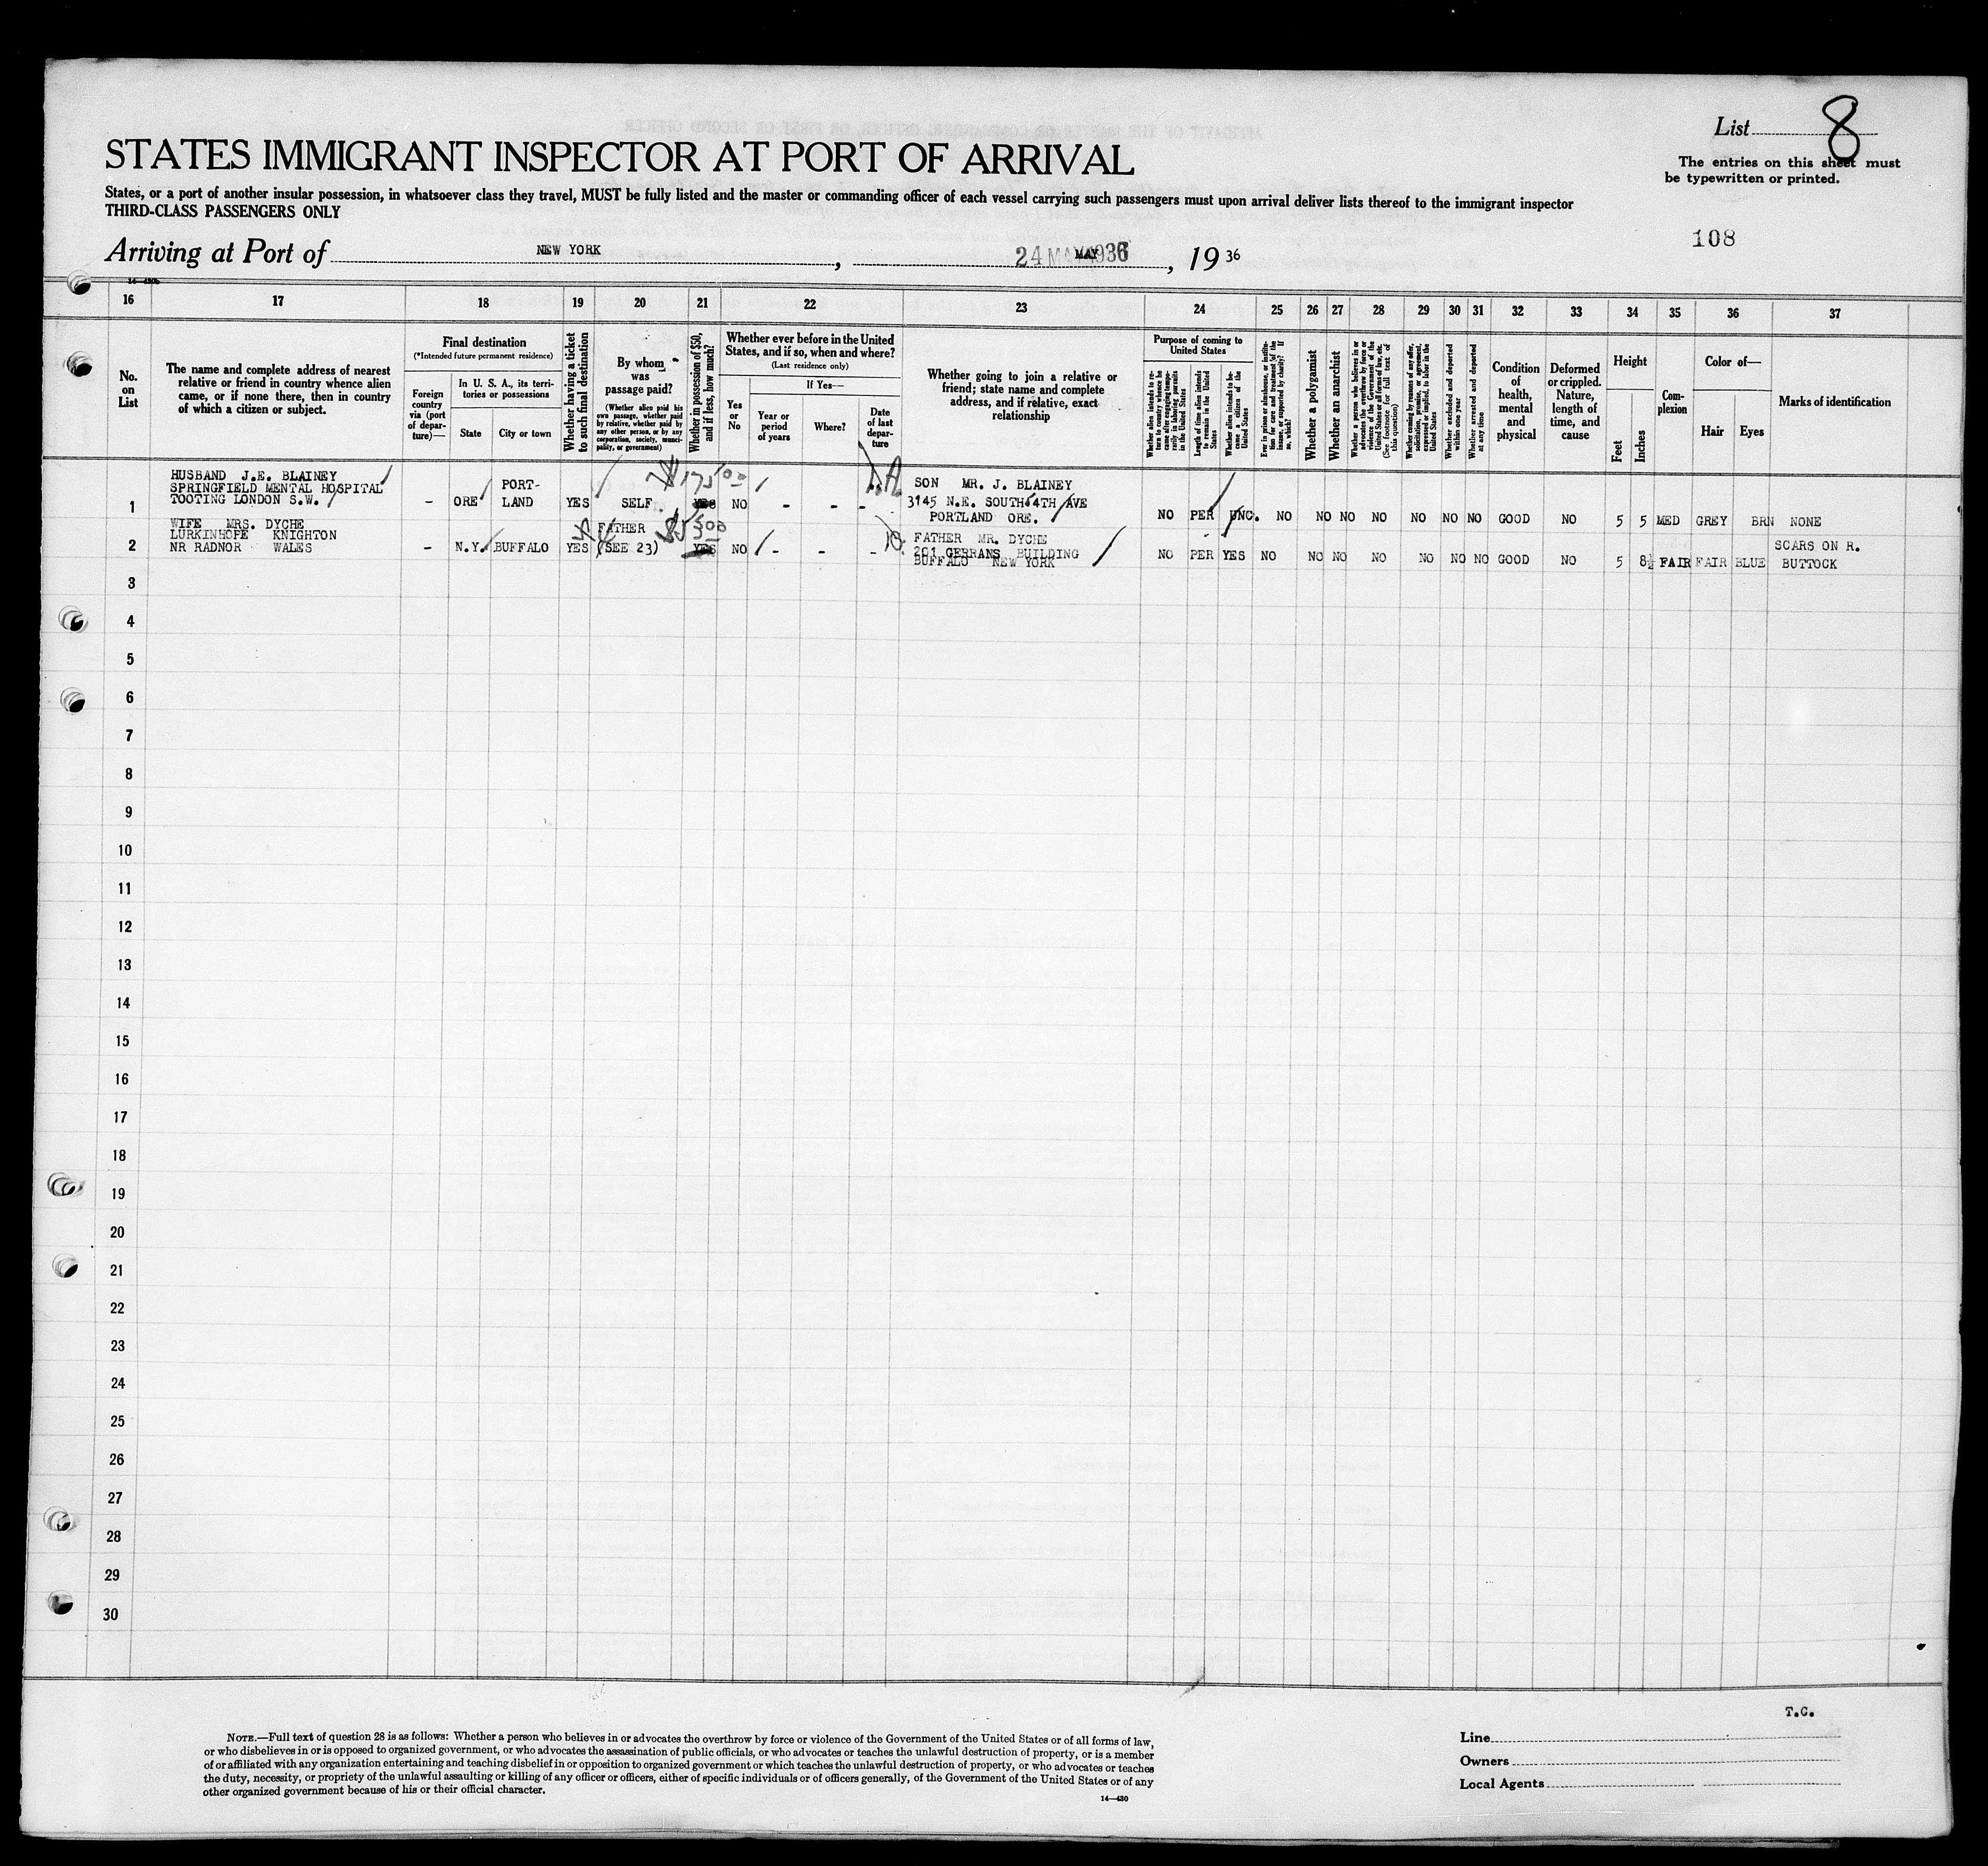 List 8
STATES IMMIGRANT INSPECTOR AT PORT OF ARRIVAL
The entries on this sheet must
be typewritten or printed.
States, or a port of another insular possession, in whatsoever class they travel, MUST be fully listed and the master or commanding officer of each vessel carrying such passengers must upon arrival deliver lists thereof to the immigrant inspector
THIRD-CLASS PASSENGERS ONLY
108
Arriving at Port of NEW YORK, 24 MAY 1936, 19 36
16 17 18 19 20 21 22 23 24 25 26 27 28 29 30 31 32 33 34 35 36 37
No.
on
List
The name and complete address of nearest
relative or friend in country whence alien
came, or if none there, then in country
of which a citizen or subject.
Final destination
(*Intended future permanent residence)
Foreign
country
via (port
of depar-
ture)—
In U. S. A., its terri-
tories or possessions
State
City or town
Whether having a ticket
to such final destination
By whom
was
passage paid?
(Whether alien paid his
own passage, whether paid
by relative, whether paid by
any other person, or by any
corporation, society, munici-
pality, or government)
Whether in possession of $50,
and if less, how much?
Whether ever before in the United
States, and if so, when and where?
(Last residence only)
Yes
or
No
If Yes—
Year or
period
of years
Where?
Date
of last
depar-
ture
Whether going to join a relative or
friend; state name and complete
address, and if relative, exact
relationship
Purpose of coming to
United States
Whether alien intends to re-
turn to country whence he
came after engaging tempo-
rarily in laboring pursuits
in the United States
Length of time alien intends
to remain in the United
States
Whether alien intends to be-
come a citizen of the
United States
Ever in prison or almshouse, or institu-
tion for care and treatment of the
insane, or supported by charity? If
so, which?
Whether a polygamist
Whether an anarchist
Whether a person who believes in or
advocates the overthrow by force or
violence of the Government of the
United States or all forms of law, etc.
(See footnote for full text of
this question)
Whether coming by reasons of any offer,
solicitation, promise, or agreement,
expressed or implied, to labor in the
United States
Whether excluded and deported
within one year
Whether arrested and deported
at any time
Condition
of
health,
mental
and
physical
Deformed
or crippled.
Nature,
length of
time, and
cause
Height
Feet
Inches
Com-
plexion
Color of—
Hair
Eyes
Marks of identification
1
HUSBAND J.E. BLAINEY
SPRINGFIELD MENTAL HOSPITAL
TOOTING LONDON S.W.
- ORE PORT-
LAND YES SELF $175.00 YES NO - - -
SON MR. J. BLAINEY
3145 N.E. SOUTH 4TH AVE
PORTLAND ORE.
NO PER UNC. NO NO NO NO NO NO NO GOOD NO 5 5 MED GREY BRN NONE
2
WIFE MRS. DYCHE
LURKINHOPE KNIGHTON
NR RADNOR WALES
- N.Y. BUFFALO YES FATHER
(SEE 23) YES NO - - -
FATHER MR. DYCHE
201 GERRANS BUILDING
BUFFALO NEW YORK
NO PER YES NO NO NO NO NO NO NO GOOD NO 5 8½ FAIR FAIR BLUE SCARS ON R.
BUTTOCK
3
4
5
6
7
8
9
10
11
12
13
14
15
16
17
18
19
20
21
22
23
24
25
26
27
28
29
30
T.C.
NOTE.—Full text of question 28 is as follows: Whether a person who believes in or advocates the overthrow by force or violence of the Government of the United States or of all forms of law,
or who disbelieves in or is opposed to organized government, or who advocates the assassination of public officials, or who advocates or teaches the unlawful destruction of property, or is a member
of or affiliated with any organization entertaining and teaching disbelief in or opposition to organized government or which teaches the unlawful destruction of property, or who advocates or teaches
the duty, necessity, or propriety of the unlawful assaulting or killing of any officer or officers, either of specific individuals or of officers generally, of the Government of the United States or of any
other organized government because of his or their official character.
14—430
Line
Owners
Local Agents